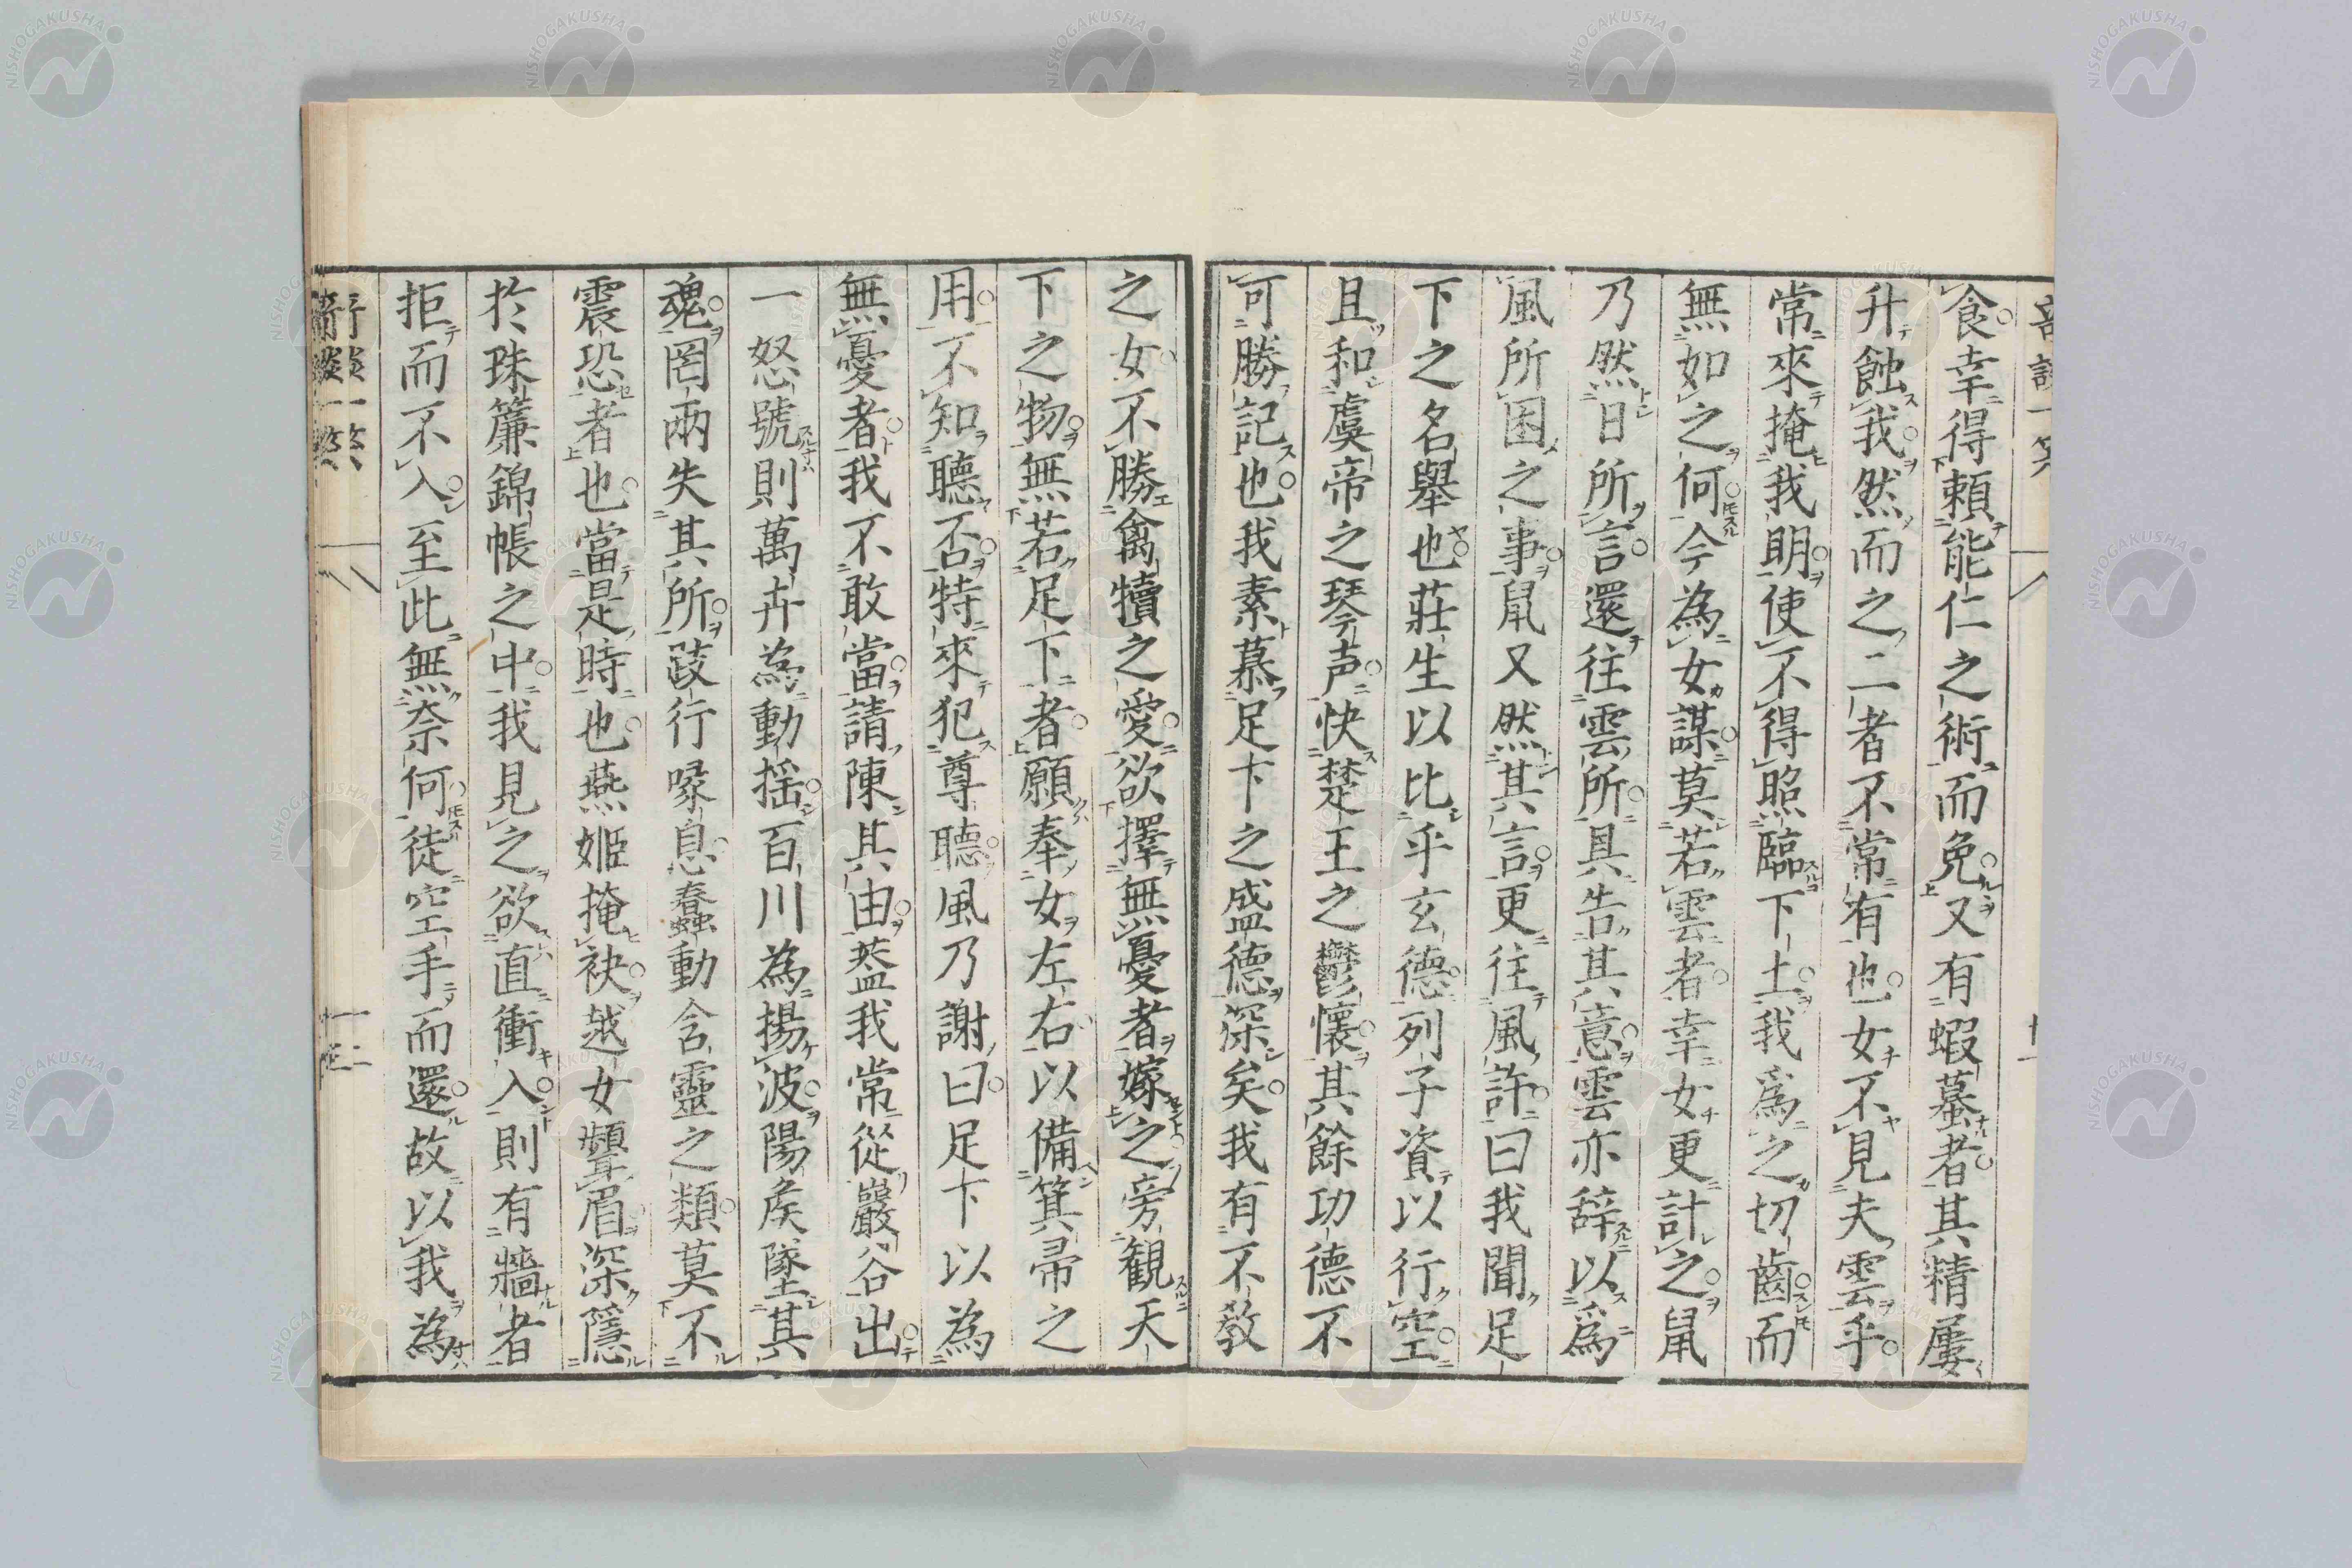 食幸得頼能仁之術而免又有蝦蟇者其精屢
升蝕我然而之二者不常有也女不見夫雲乎
常來掩我明使不得照臨下土我爲之切齒而
無如之何今為女謀莫若雲者幸女更計之鼠
乃然日所言還往雲所具告其意雲亦辞以爲
風所困之事鼠又然其言更往風許曰我聞足
下之名舉也莊生以比乎玄德列子資以行空
且和虞帝之琴声快楚王之鬱懷其餘功德不
可勝記也我素慕足下之盛德深矣我有不敎
之女不勝禽犢之愛欲擇無憂者嫁之旁観天
下之物無若足下者願奉女左右以備箕帚之
用不知聽否特來犯尊聽風乃謝曰足下以為
無憂者我不敢當請陳其由葢我常從巖谷出
一怒號則萬卉為動揺百川為揚波陽矦墜其
魂罔兩失其所跂行喙息蠢動含靈之類莫不
震恐者也當是時也燕姬掩袂越女顰眉深隱
於珠簾錦帳之中我見之欲直衝入則有牆者
拒而不入至此無奈何徒空手而還故以我為
NISHOGAKUSHA